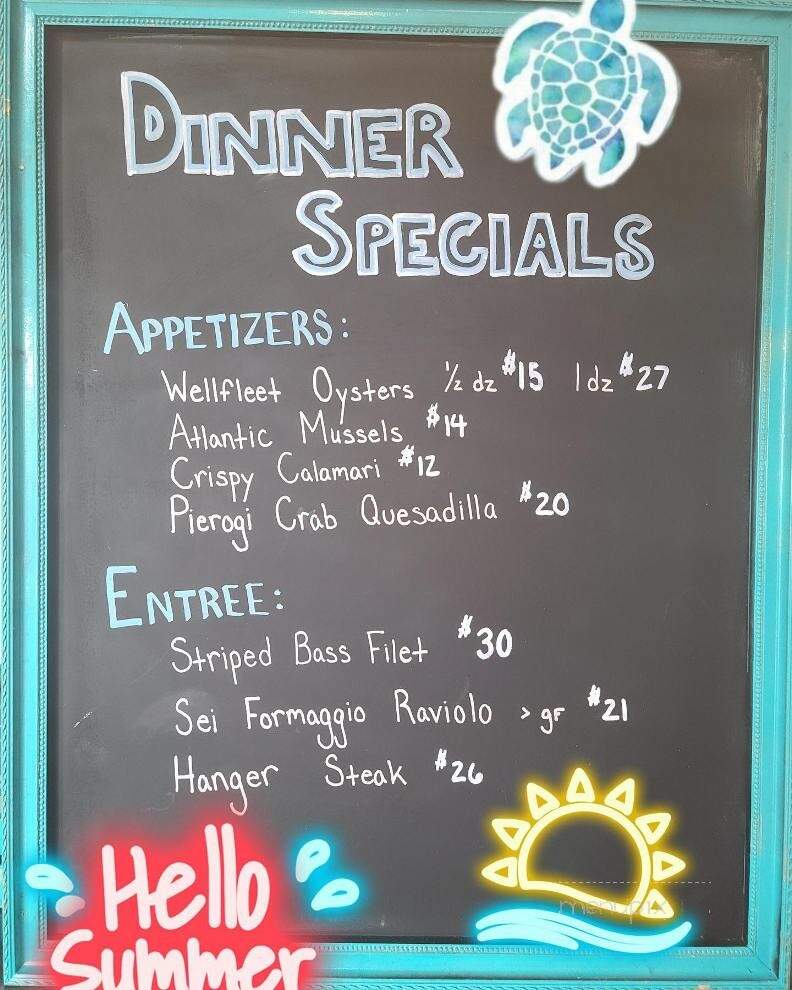 DINNER
SPECIALS
APPETIZERS:
Wellfleet Oysters ½ dz $15 1dz $27
Atlantic Mussels $14
Crispy Calamari $12
Pierogi Crab Quesadilla $20
ENTREE:
Striped Bass Filet $30
Sei Formaggio Raviolo > gF $21
Hanger Steak $26
Hello
Summer
menupix